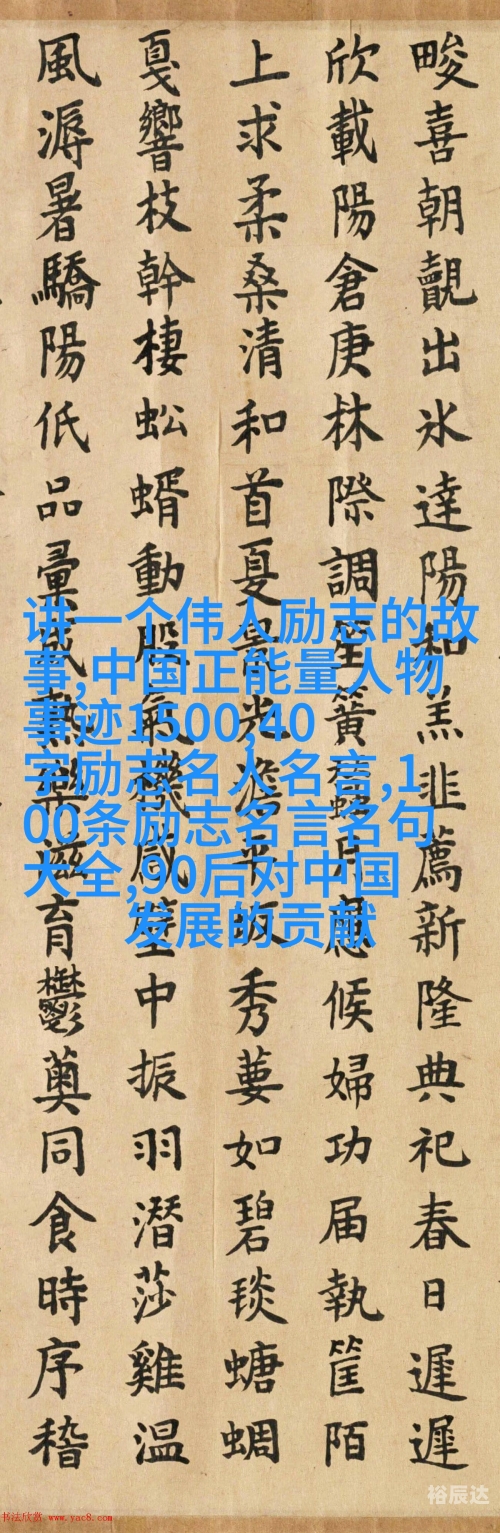 畯喜朝覿出冰達陽和羔韭薦新隆典祀春日遲遲
欣載陽倉庚林際調笙簧蠶月應候婦功届執筐陌
上求柔桑清和首夏景光澹秀葽如碧琰螗蜩
戛響枝幹棲蚣蝑動股氣機咸壁中振羽潛莎雞温
風溽暑驕陽低品彙咸熱樂滋育鬱薁同食時序稽
讲一个伟人励志的故
事,中国正能量人物
事迹1500,40
字励志名人名言,1
00条励志名言名句
大全,90后对中国
发展的贡献
书法欣赏 www.yac8.com
裕辰达